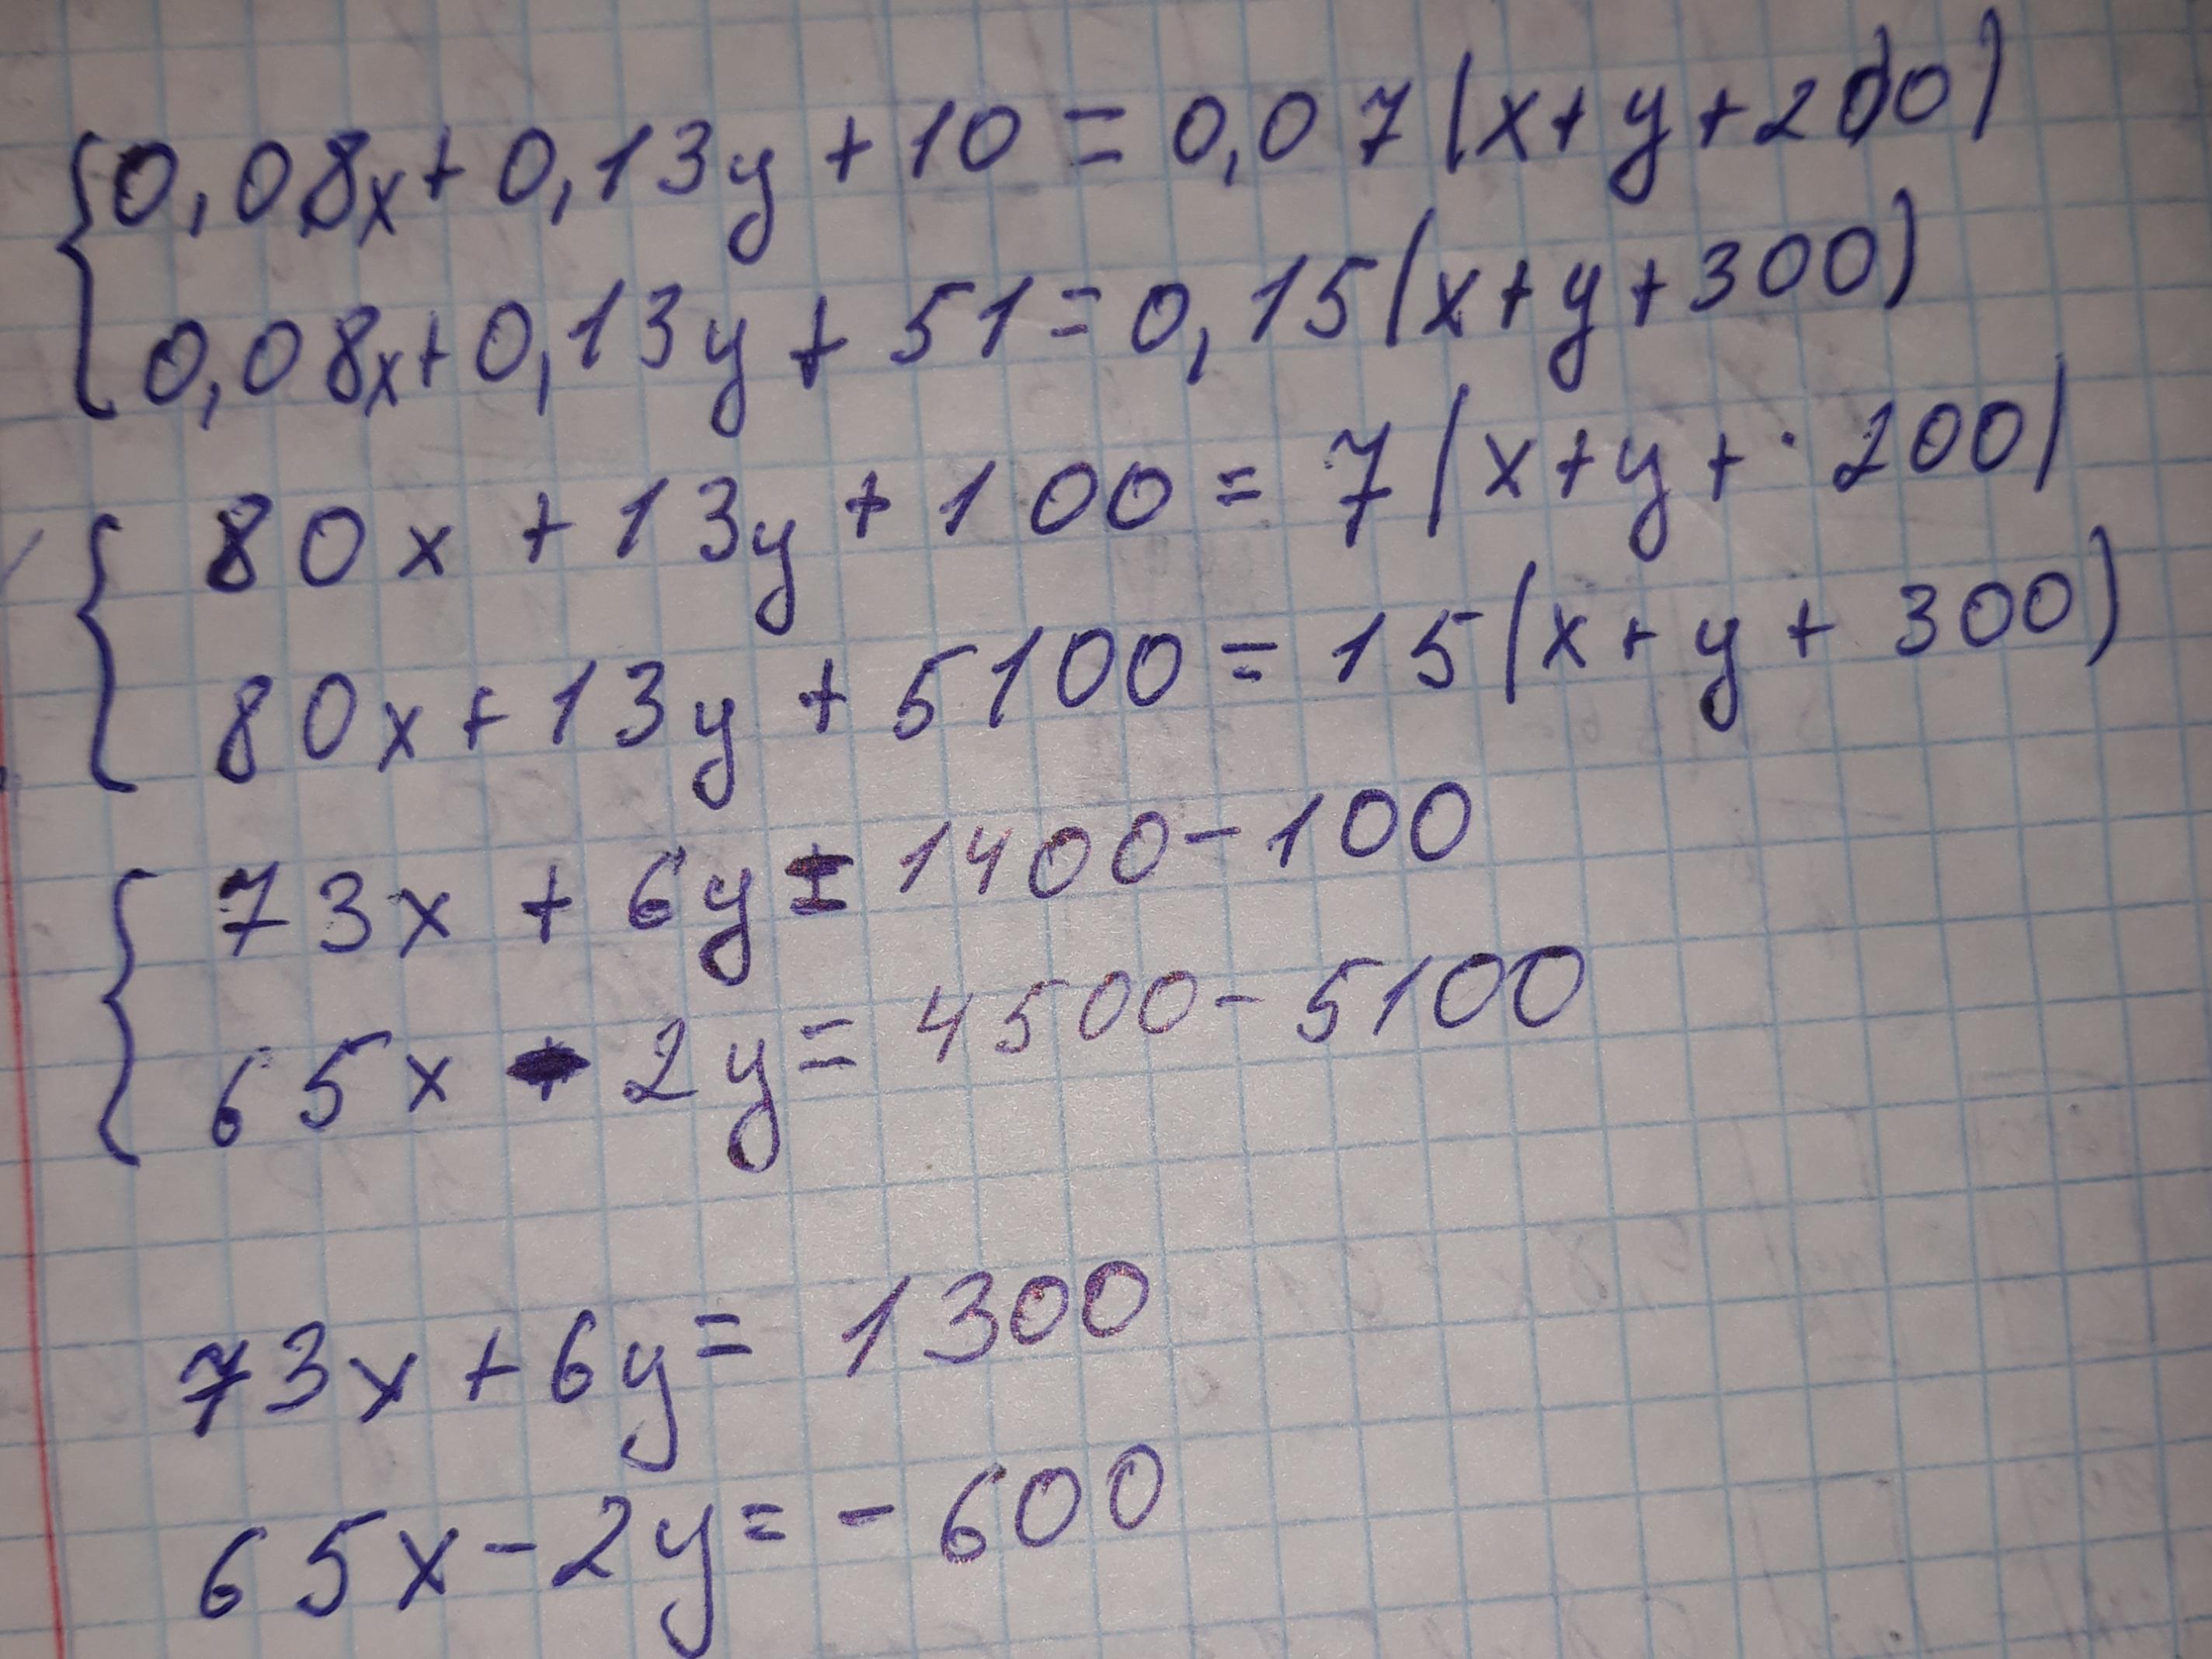 {0,08x+0,13y+10=0,07(x+y+200)
0,08x+0,13y+51=0,15(x+y+300)
{80x+13y+100=7(x+y+200)
80x+13y+5100=15(x+y+300)
{73x+6y=1400-100
65x-2y=4500-5100
73x+6y=1300
65x-2y=-600